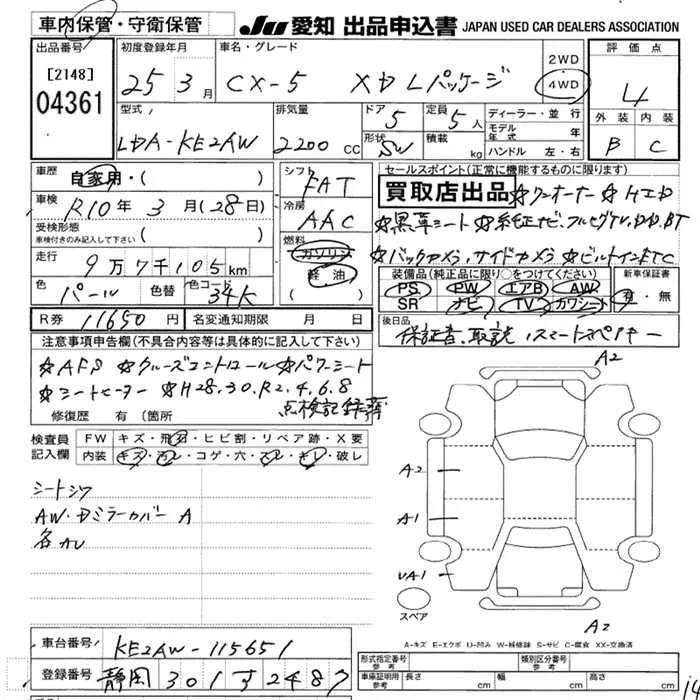 車内保管・守衛保管
JU 愛知 出品申込書 JAPAN USED CAR DEALERS ASSOCIATION
出品番号 初度登録年月 車名・グレード 2WD 評価点
[2148] 25 3月 CX-5 XD Lパッケージ 4WD 4
04361
型式 排気量 ドア 定員 ディーラー・並行 外装 内装
LDA-KE2AW 2200 CC 5 5人 モデル年式 年 B C
形状 SW 積載 kg ハンドル 左・右
車歴 自家用・( ) シフト FAT セールスポイント(正常に機能するものに限ります)
買取店出品 ☆ワンオーナー ☆H.エD
車検 R10年3月(28日) 冷房 AAC ☆黒革シート☆純正ナビ.フルセグTV.DVD.BT
受検形態
車検付きのみ記入して下さい ( ) 燃料 ガソリン 軽油 ☆バックカメラ,サイドカメラ ☆ビルトインETC
走行 9万7千105km 装備品(純正品に限り○をつけてください) 新車保証書
色 パール 色替 色コード 34K PS PW エアB AW 有・無
( ) SR ナビ TV カワシート
R券 11650円 名変通知期限 月 日 後日品
保証書.取説,スマートスペアキー
注意事項申告欄(不具合内容等は具体的に記入して下さい)
☆AFS ☆クルーズコントロール☆パワーシート
☆シートヒーター ☆H28.30.R2.4.6.8
点検記録簿
修復歴 有(箇所
検査員記入欄 FW キズ・飛石・ヒビ割・リペア跡・X要
内装 キズ・汚レ・コゲ・穴・スレ・キレ・破レ
シートシワ
AW・Dミラーカバー A
各AU
A2
A2
A1
UA1
スペア
A2
A-キズ E-エクボ U-凹み W-補修跡 S-サビ C-腐食 XX-交換済
車台番号 KE2AW-115651
登録番号 静岡 301 す 2487
形式指定番号 参考 類別区分番号 参考
車庫証明用 参考 長さ cm 幅 cm 高さ cm